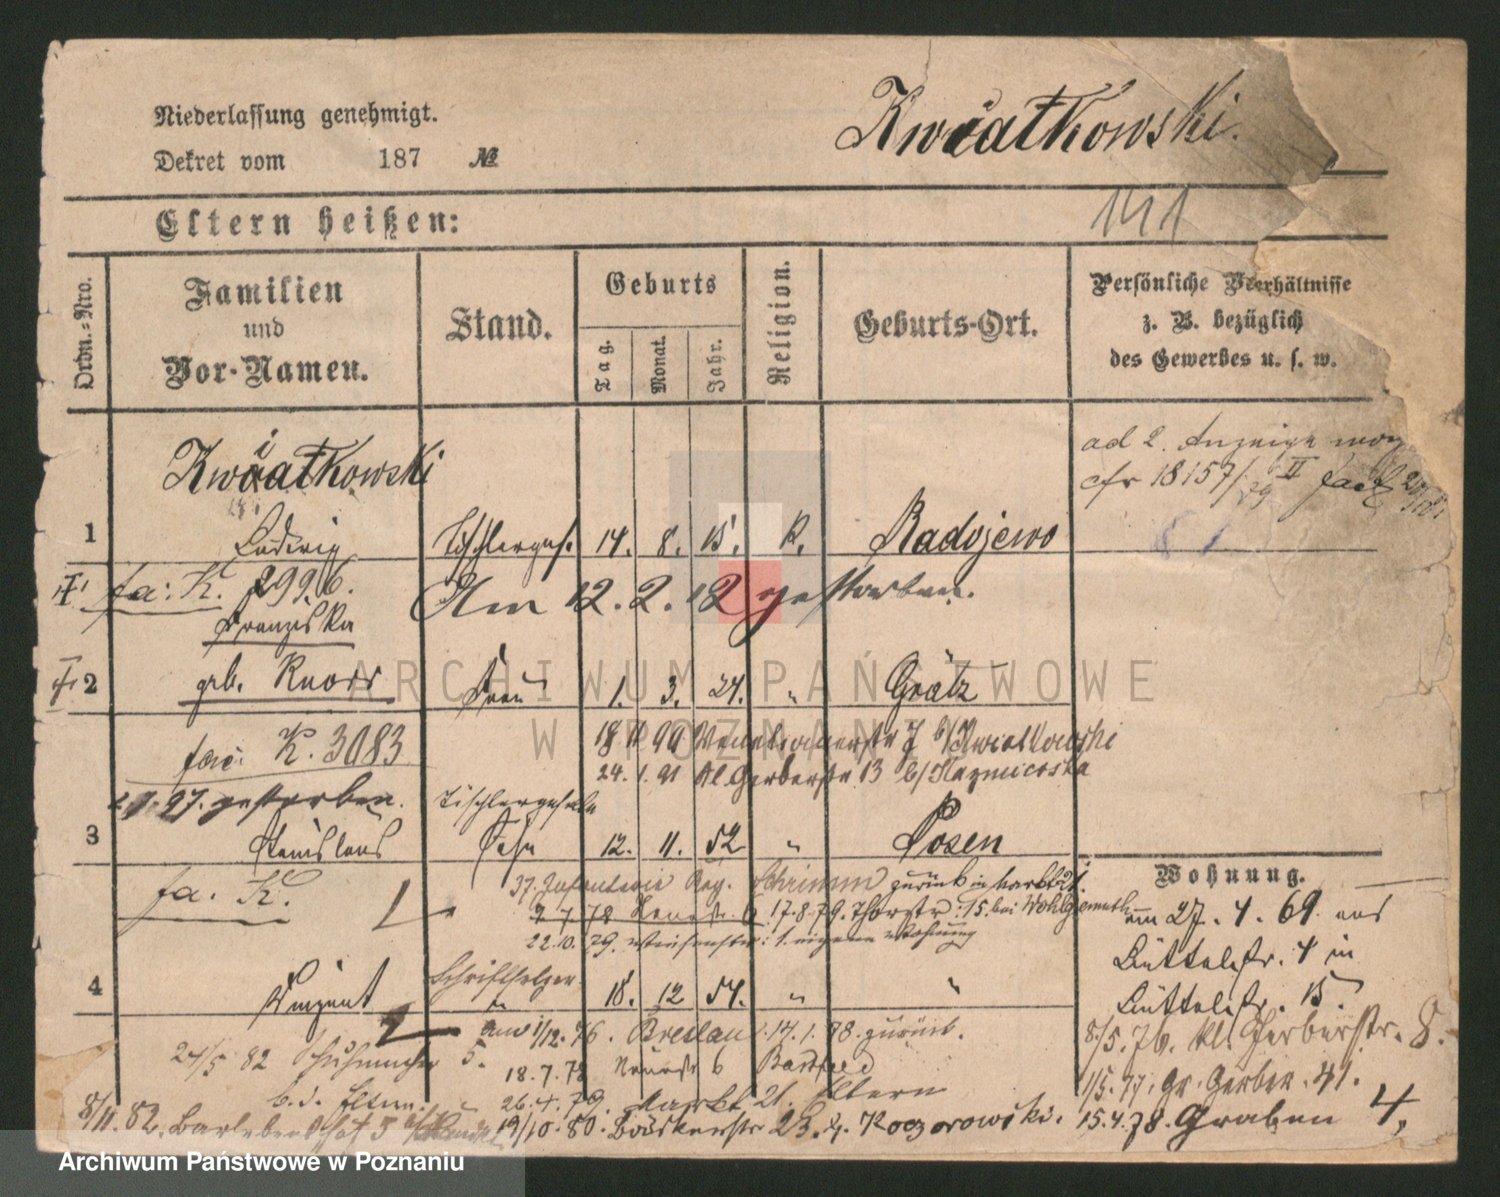 Niederlassung genehmigt.
Dekret vom 187 №
Kwiatkowski.
141
Eltern heißen:
Ordn.-Nro.
Familien und Vor-Namen.
Stand.
Geburts
Tag.
Monat.
Jahr.
Religion.
Geburts-Ort.
Persönliche Verhältnisse
z. B. bezüglich
des Gewerbes u. s. w.
ad 2. Anzeige
cfr 18157/ II
Kwiatkowski
1 Ludwig Tischlerges. 14. 8. 15. K. Radojewo
fa: K. 2996. Am 12. 2. 82 gestorben.
Franziska
2 geb. Knorr Frau 1. 3. 24. " Grätz
fa: K. 3083
18 90 Venetianerstr 7 b/Kwiatkowski
24. 1. 91 Kl Gerberstr 13 b/Kazmierska
97. gestorben. Tischlergeselle
3 Stanislaus Sohn 12. 11. 52 " Posen
fa. K.
37. Infanterie Reg. Schrimm zurück in Markt 21.
2.7.78 6 17.8.79. Thorstr. 15. bei Wohlgemuth
22.10.79. 1. eigene Wohnung
Schriftsetzer
4 Vinzent " 18. 12 54. " "
am 1/12. 76. Breslau 14. 1. 78. zurück.
24/5 82 Schuhmacher 5. 18.7.78 Neuestr 6
b. d. Eltern. 26.4.79. Markt 21. Eltern
8/11.82. 19/10.80. Bäckerstr 23. Koczorowski.
Wohnung.
am 27. 4. 69. aus
Büttelstr. 4 in
Büttelstr. 15.
8/5. 76. Kl. Gerberstr. 8.
1/5. 77. Gr. Gerber. 41.
15.4.78. Graben 4,
ARCHIWUM PAŃSTWOWE
W POZNANIU
Archiwum Państwowe w Poznaniu